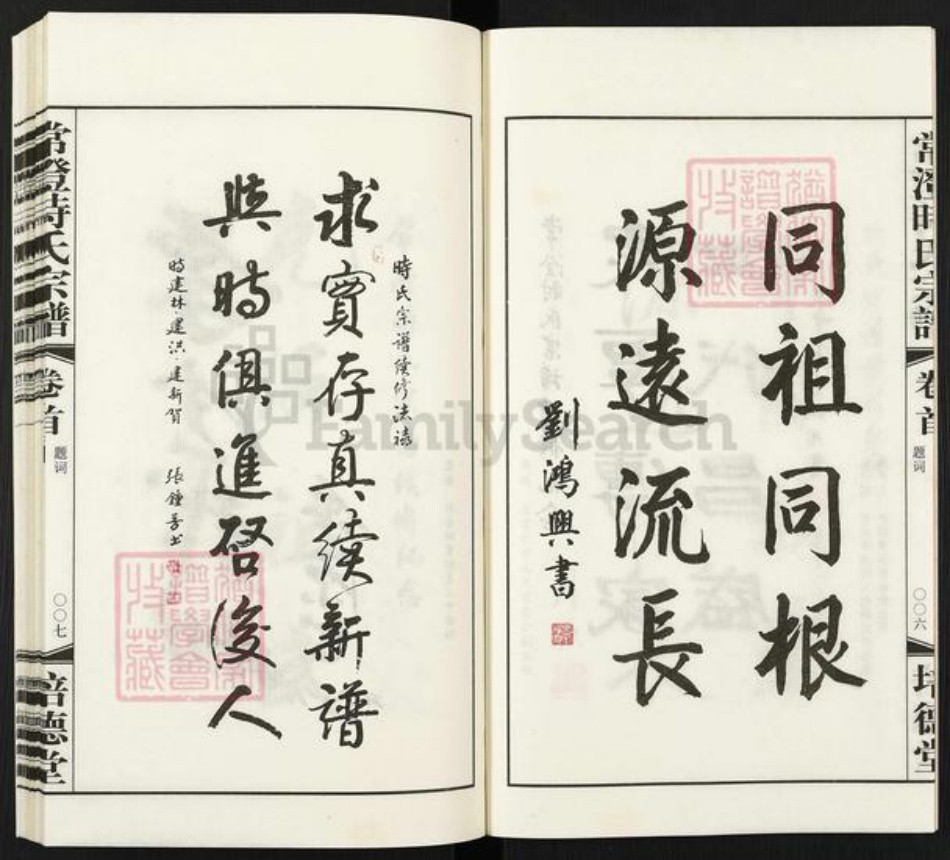 常澄時氏宗譜
卷首
題词
〇〇六
培德堂
同祖同根
源遠流長
劉鴻興書
時氏宗譜續修誌禧
求實存真續新譜
與時俱進啓後人
時建林·建洪·建新賀
張鍾芳书
常澄時氏宗譜
卷首
題词
〇〇七
培德堂
FamilySearch
譜學會
收藏
譜學會
收藏